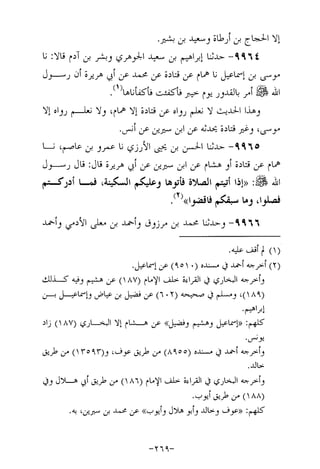 إلا الحجاج بن أرطاة وسعيد بن بشير.
٩٩٦٤- حدثنا إبراهيم بن سعيد الجوهري وبشر بن آدم قالا: نا
موسى بن إسماعيل نا همام عن قتادة عن محمد عن أبي هريرة أن رسـول
الله ﷺ أمر بالقدور يوم خيبر فأكفئت فأكفأناها(١).
وهذا الحديث لا نعلم رواه عن قتادة إلا همام، ولا نعلـم رواه إلا
موسى، وغير قتادة يحدثه عن ابن سيرين عن أنس.
٩٩٦٥- حدثنا الحسن بن يحيى الأرزي نا عمرو بن عاصم، نـا
همام عن قتادة أو هشام عن ابن سيرين عن أبي هريرة قال: قال رسـول
الله ﷺ: «إذا أتيتم الصلاة فأتوها وعليكم السكينة، فمـا أدركـتم
فصلوا، وما سبقكم فاقضوا»(٢).
٩٩٦٦- وحدثنا محمد بن مرزوق وأحمد بن معلى الأدمي وأحمد
(١) لم أقف عليه.
(٢) أخرجه أحمد في مسنده (٩٥١٠) عن إسماعيل.
وأخرجه البخاري في القراءة خلف الإمام (١٨٧) عن هشيم وفيه كـذلك
(١٨٩)، ومسلم في صحيحه (٦٠٢) عن فضيل بن عياض وإسماعيـل بـن
إبراهيم.
كلهم: «إسماعيل وهشيم وفضيل» عن هـشام إلا البخـاري (١٨٧) زاد
يونس.
وأخرجه أحمد في مسنده (٨٩٥٥) من طريق عوف، و(١٣٥٩٣) من طريق
خالد.
وأخرجه البخاري في القراءة خلف الإمام (١٨٦) من طريق أبي هـلال وفي
(١٨٨) من طريق أيوب.
كلهم: «عوف وخالد وأبو هلال وأيوب» عن محمد بن سيرين، به.
-٢٦٩-